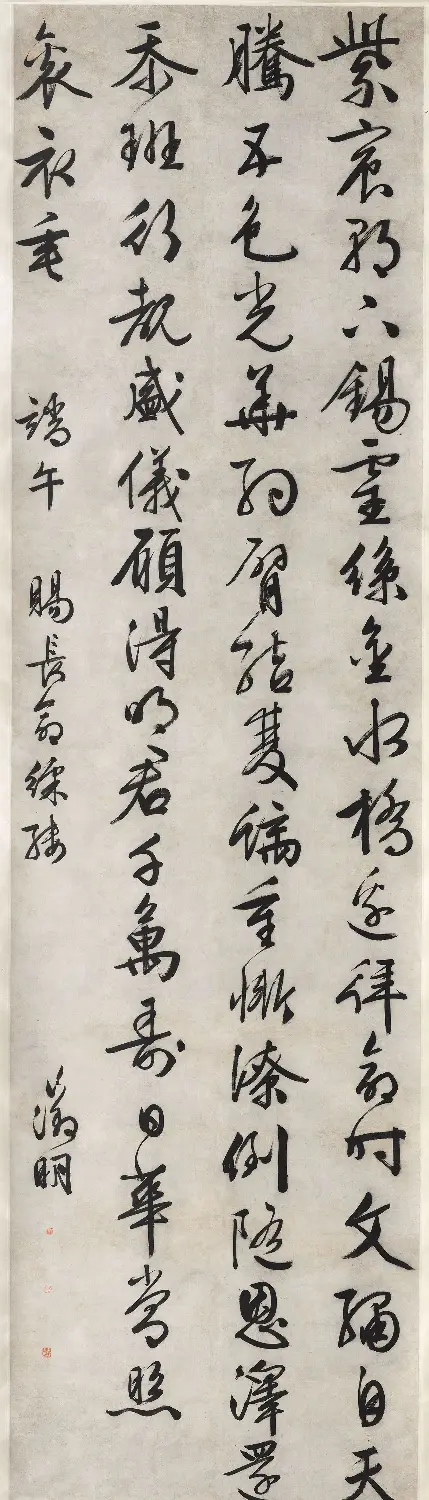 紫宸朝下錫靈絲金水橋邊拜命時文繡自天
騰五色光華約臂結雙螭重慚潦倒隨恩澤還
忝班行覩盛儀願得明君千萬壽日華常照
袞衣垂
端午 賜長命綵縷
徵明